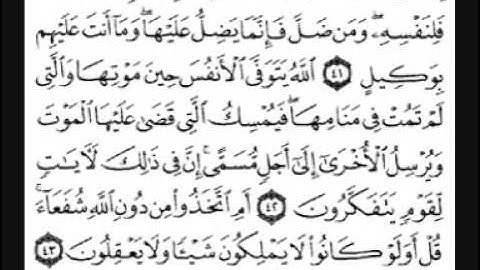 فَلِنَفْسِهِۦ ۖ وَمَن ضَلَّ فَإِنَّمَا يَضِلُّ عَلَيْهَا ۖ وَمَآ أَنتَ عَلَيْهِم
بِوَكِيلٍ ٤١ ٱللَّهُ يَتَوَفَّى ٱلْأَنفُسَ حِينَ مَوْتِهَا وَٱلَّتِى
لَمْ تَمُتْ فِى مَنَامِهَا ۖ فَيُمْسِكُ ٱلَّتِى قَضَىٰ عَلَيْهَا ٱلْمَوْتَ
وَيُرْسِلُ ٱلْأُخْرَىٰٓ إِلَىٰٓ أَجَلٍ مُّسَمًّى ۚ إِنَّ فِى ذَٰلِكَ لَءَايَٰتٍ
لِّقَوْمٍ يَتَفَكَّرُونَ ٤٢ أَمِ ٱتَّخَذُوا۟ مِن دُونِ ٱللَّهِ شُفَعَآءَ ۚ
قُلْ أَوَلَوْ كَانُوا۟ لَا يَمْلِكُونَ شَيْـًٔا وَلَا يَعْقِلُونَ ٤٣